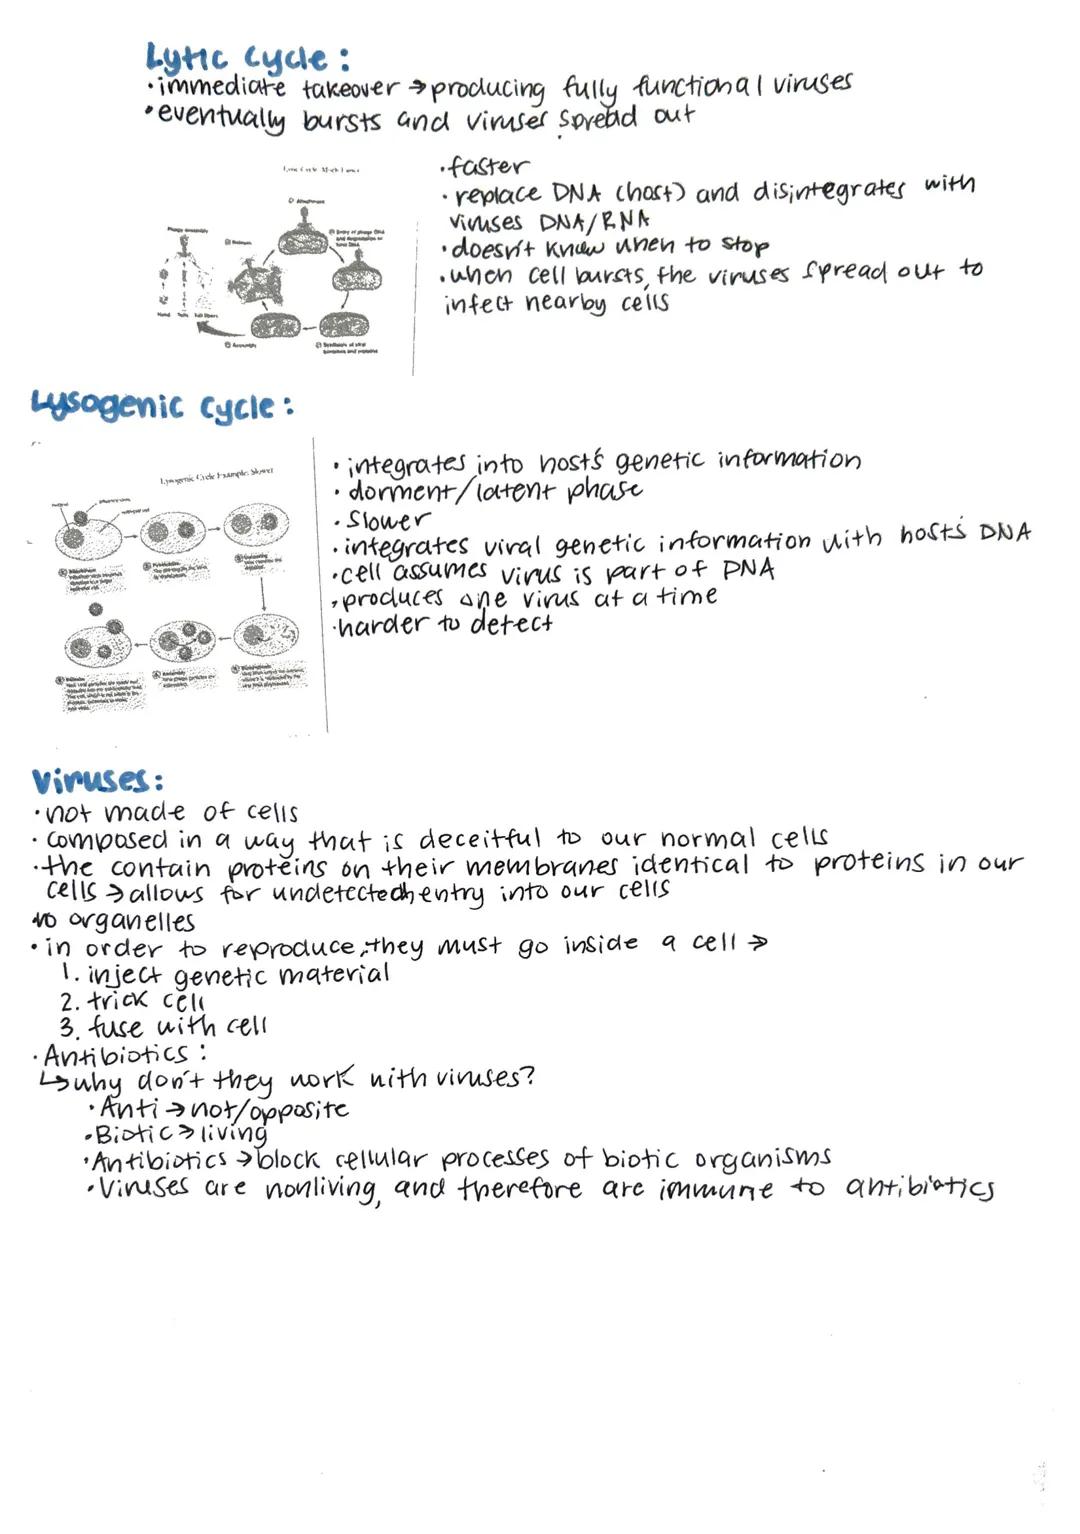 Lytic Cycle:
·immediate takeover → producing fully functional viruses
·eventually bursts and viruses spread out
Lytic Cycle Much Faster
① Attachment
Phage Assembly
② Entry of phage DNA and degradation of host DNA
⑤ Release
Head Tails Tail fibers
④ Assembly
③ Synthesis of viral genomes and proteins
·faster
·replace DNA (host) and disintegrates with
viruses DNA/RNA
·doesn't know when to stop
·when cell bursts, the viruses spread out to
infect nearby cells
Lysogenic Cycle:
Lysogenic Cycle Example: Slower
·integrates into host's genetic information
·dorment/latent phase
·Slower
·integrates viral genetic information with host's DNA
·cell assumes virus is part of DNA
·produces one virus at a time
·harder to detect
Viruses:
·not made of cells
·composed in a way that is deceitful to our normal cells
·the contain proteins on their membranes identical to proteins in our
cells → allows for undetected entry into our cells
no organelles
·in order to reproduce, they must go inside a cell →
1. inject genetic material
2. trick cell
3. fuse with cell
·Antibiotics:
↳ why don't they work with viruses?
·Anti → not/opposite
·Biotic → living
·Antibiotics → block cellular processes of biotic organisms
·Viruses are nonliving, and therefore are immune to antibiotics